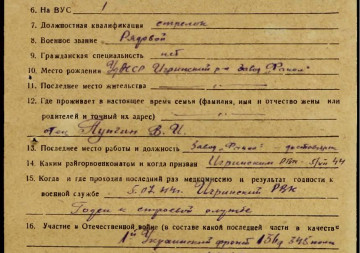 6. На ВУС 1
7. Должностная квалификация стрелок
8. Военное звание Рядовой
9. Гражданская специальность нет
10. Место рождения УдАССР Игринский р-н завод Факел
11. Последнее место жительства "
12. Где проживает в настоящее время семья (фамилия, имя и отчество жены или
родителей и точный их адрес)
отец В. И.
13. Последнее место работы и должность Завод "Факел"
14. Каким райгорвоенкоматом и когда призван Игринским РВК 44
15. Когда и где проходил последний раз медкомиссию и результат годности к
военной службе 5.02.44г. Игринский РВК
Годен к строевой службе
16. Участие в Отечественной войне (в составе какой последней части и качестве
1й Украинский фронт